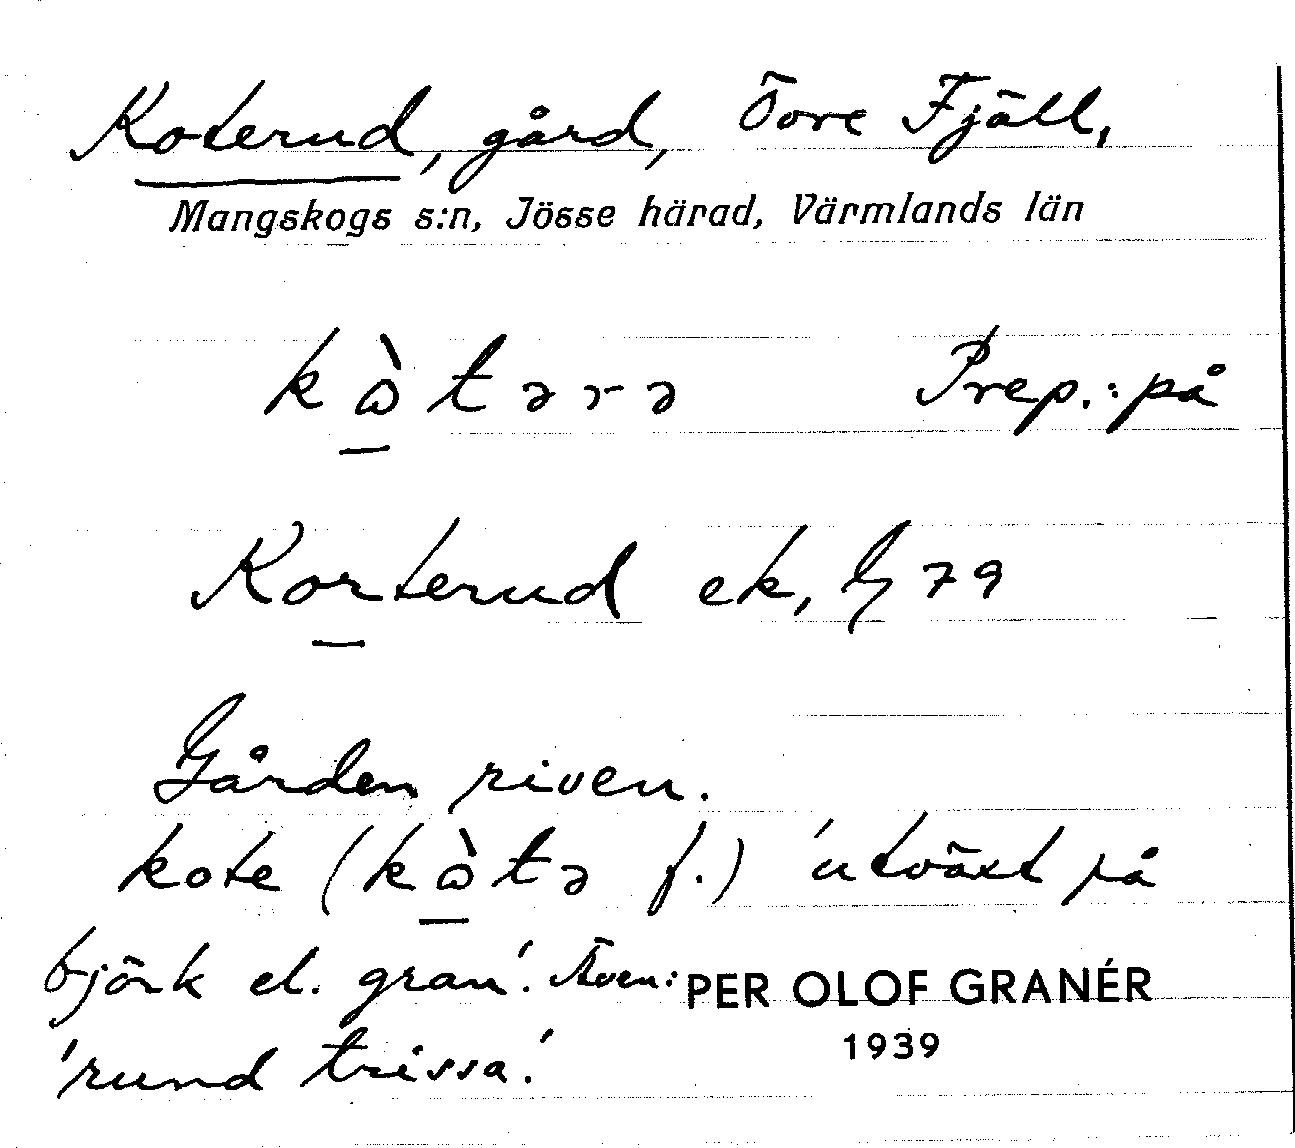 Koterud, gård, Övre Fjäll,
Mangskogs s:n, Jösse härad, Värmlands län
kɷ̀tərə Prep.: på
Korterud ek, G 79
Gården riven.
kote (kɷ̀tə f.) 'utväxt på
björk el. gran'. Även:
'rund trissa'.
PER OLOF GRANÉR
1939